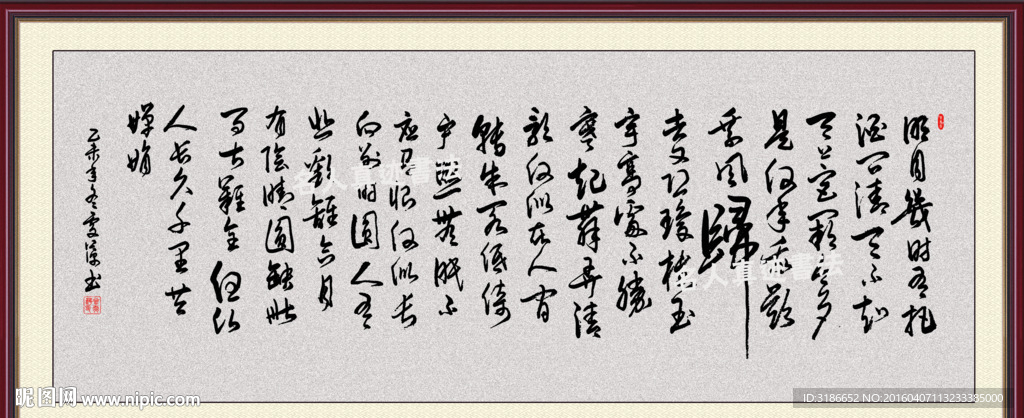 明月幾时有把
酒问清天不知
天上宫阙今夕
是何年我欲
乘风歸
去又恐瓊楼玉
宇高處不勝
寒起舞弄清
影何似在人间
轉朱阁低绮
户照無眠不
应有恨何似长
向别时圆人有
悲歡離合月
有陰晴圆缺此
事古難全但願
人长久千里共
嬋娟
乙未年冬书
名人真迹書法
名人真迹書法
昵图网 www.nipic.com
ID:3186652 NO:20160407113233385000